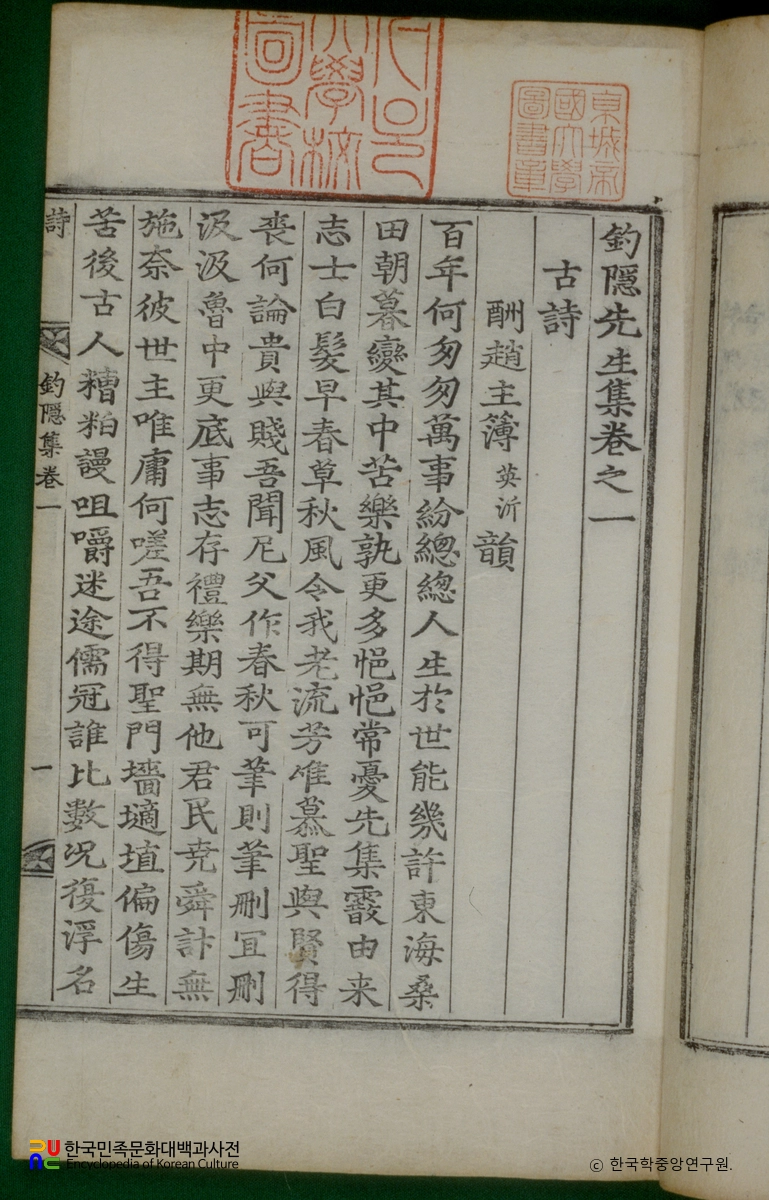 釣隱先生集卷之一
古詩
酬趙主簿英沂韻
百年何匆匆萬事紛總總人生於世能幾許東海桑
田朝暮變其中苦樂孰更多悒悒常憂先集霰由来
志士白髮早春草秋風令我老流芳唯慕聖與賢得
喪何論貴與賤吾聞尼父作春秋可筆則筆刪冝刪
汲汲魯中更底事志存禮樂期無他君民堯舜計無
施奈彼世主唯庸何嗟吾不得聖門墻擿埴偏傷生
苦後古人糟粕謾咀嚼迷途儒冠誰比數况復浮名
詩
釣隱集卷一
一
京城帝
國大學
圖書章
大學校
圖書
한국민족문화대백과사전
Encyclopedia of Korean Culture
ⓒ 한국학중앙연구원.